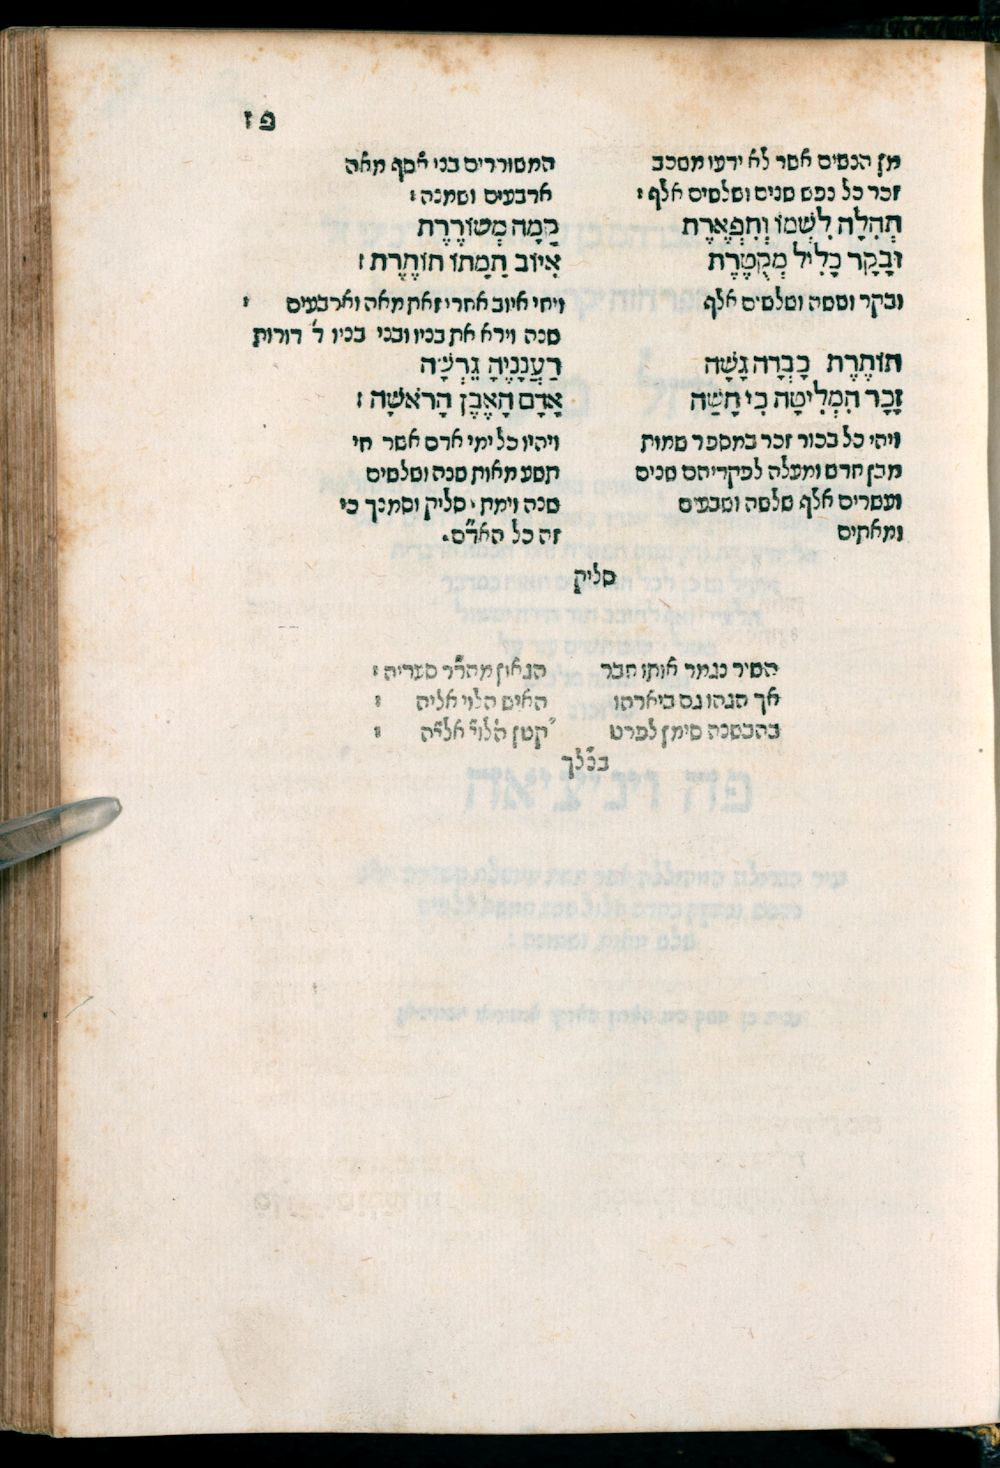 פז
מן הנשים אשר לא ידעו משכב
זכר כל נפש שנים ושלשים אלף :
תְּהִלָּה לִשְׁמוֹ וְתִפְאֶרֶת
וּבָקָר כָּלִיל מְקֻטֶּרֶת
ובקר וששה ושלשים אלף
תוֹתֶרֶת כָּבְדָה גָּשָׁה
זָכָר הִמְלִיטָה כִּי חָשָׁה
ויהי כל בכור זכר במספר שמות
מבן חדש ומעלה לפקדיהם שנים
ועשרים אלף שלשה ושבעים
ומאתים
המשוררים בני אסף מאה
ארבעים ושמנה :
קָמָה מְשׁוֹרֶרֶת
אִיּוֹב חַמָתוֹ חוֹתֶרֶת :
ויחי איוב אחרי זאת מאה וארבעים :
שנה וירא את בניו ובני בניו ד' דורות
רַעֲנָנֶיהָ גֵּרְשָׁה
אָדָם הָאֶבֶן הָרֹאשָׁה :
ויהיו כל ימי אדם אשר חי
תשע מאות שנה ושלשים
שנה וימת · סליק וסמנך כי
זה כל האד"ם.
סליק
השיר נגמר אותו חבר הגאון מהר"ר סעדיה :
אך הגהו גם ביארהו האיש הלוי אליה :
בהבשנה סימן לפרט קטן הלו"י אלי"ה :
בנ"לך